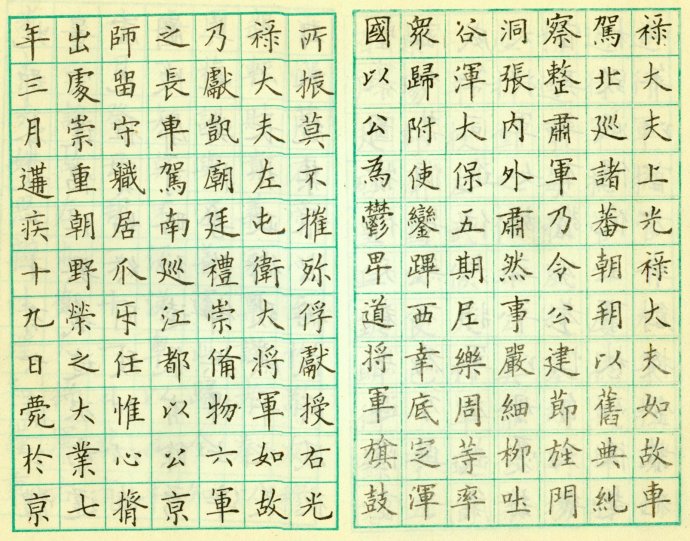 祿大夫上光祿大夫如故車
駕北巡諸蕃朝朔以舊典糺
察整肅軍乃令公建節旌門
洞張內外肅然事嚴細柳吐
谷渾大保五期尼樂周等率
衆歸附使鑾蹕西幸底定渾
國以公為鬱卑道將軍旗鼓
所振莫不摧殄俘獻授右光
祿大夫左屯衛大將軍如故
乃獻凱廟廷禮崇備物六軍
之長車駕南巡江都以公京
師留守職居爪牙任惟心膂
出處崇重朝野榮之大業七
年三月遘疾十九日薨於京